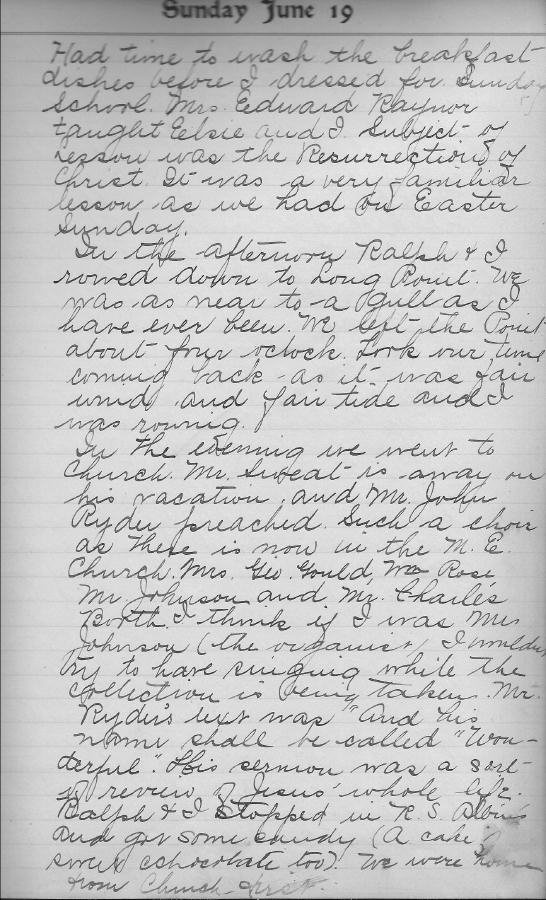 Sunday June 19
Had time to wash the breakfast
dishes before I dressed for Sunday
School. Mrs. Edward Raynor
taught Eelsie and I. Subject of
Lesson was the Resurrection of
Christ. It was a very familiar
lesson as we had on Easter
Sunday.
In the afternoon Ralph & I
rowed down to Long Point. We
was as near to a gull as I
have ever been. We left the Point
about four o'clock. Took our time
coming back as it was fair
wind and fair tide and I
was rowing.
In the evening we went to
Church. Mr. Sweat is away on
his vacation and Mr. John
Ryder preached. Such a choir
as there is now in the M. E.
Church. Mrs. Geo. Gould, Wm Rose
Mr. Johnson and Mr. Charles
Booth. I think if I was Mrs
Johnson (the organist) I wouldn't
try to have singing while the
collection is being taken. Mr.
Ryder's text was "And his
name shall be called "Won-
derful". His sermon was a sort
of review of Jesus' whole life.
Ralph & I stopped in R. S.
and got some candy (A cake
sweet chocolate too). We were home
from Church first.